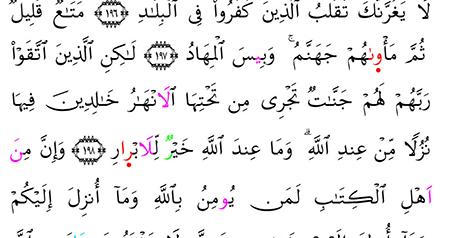 لَا يَغُرَّنَّكَ تَقَلُّبُ الَّذِينَ كَفَرُوا۟ فِي الْبِلَٰدِ ١٩٦ مَتَٰعٌ قَلِيلٌ
ثُمَّ مَأْوىٰهُمْ جَهَنَّمُ ۖ وَبِيسَ الْمِهَادُ ١٩٧ لَٰكِنِ الَّذِينَ اتَّقَوْا۟
رَبَّهُمْ لَهُمْ جَنَّٰتٌ تَجْرِي مِن تَحْتِهَا الَانْهَٰرُ خَٰلِدِينَ فِيهَا
نُزُلًا مِّنْ عِندِ اللَّهِ ۗ وَمَا عِندَ اللَّهِ خَيْرٌ لِّلَابْرارِ ١٩٨ وَإِنَّ مِنَ
اَهْلِ الْكِتَٰبِ لَمَن يُومِنُ بِاللَّهِ وَمَآ أُنزِلَ إِلَيْكُمْ